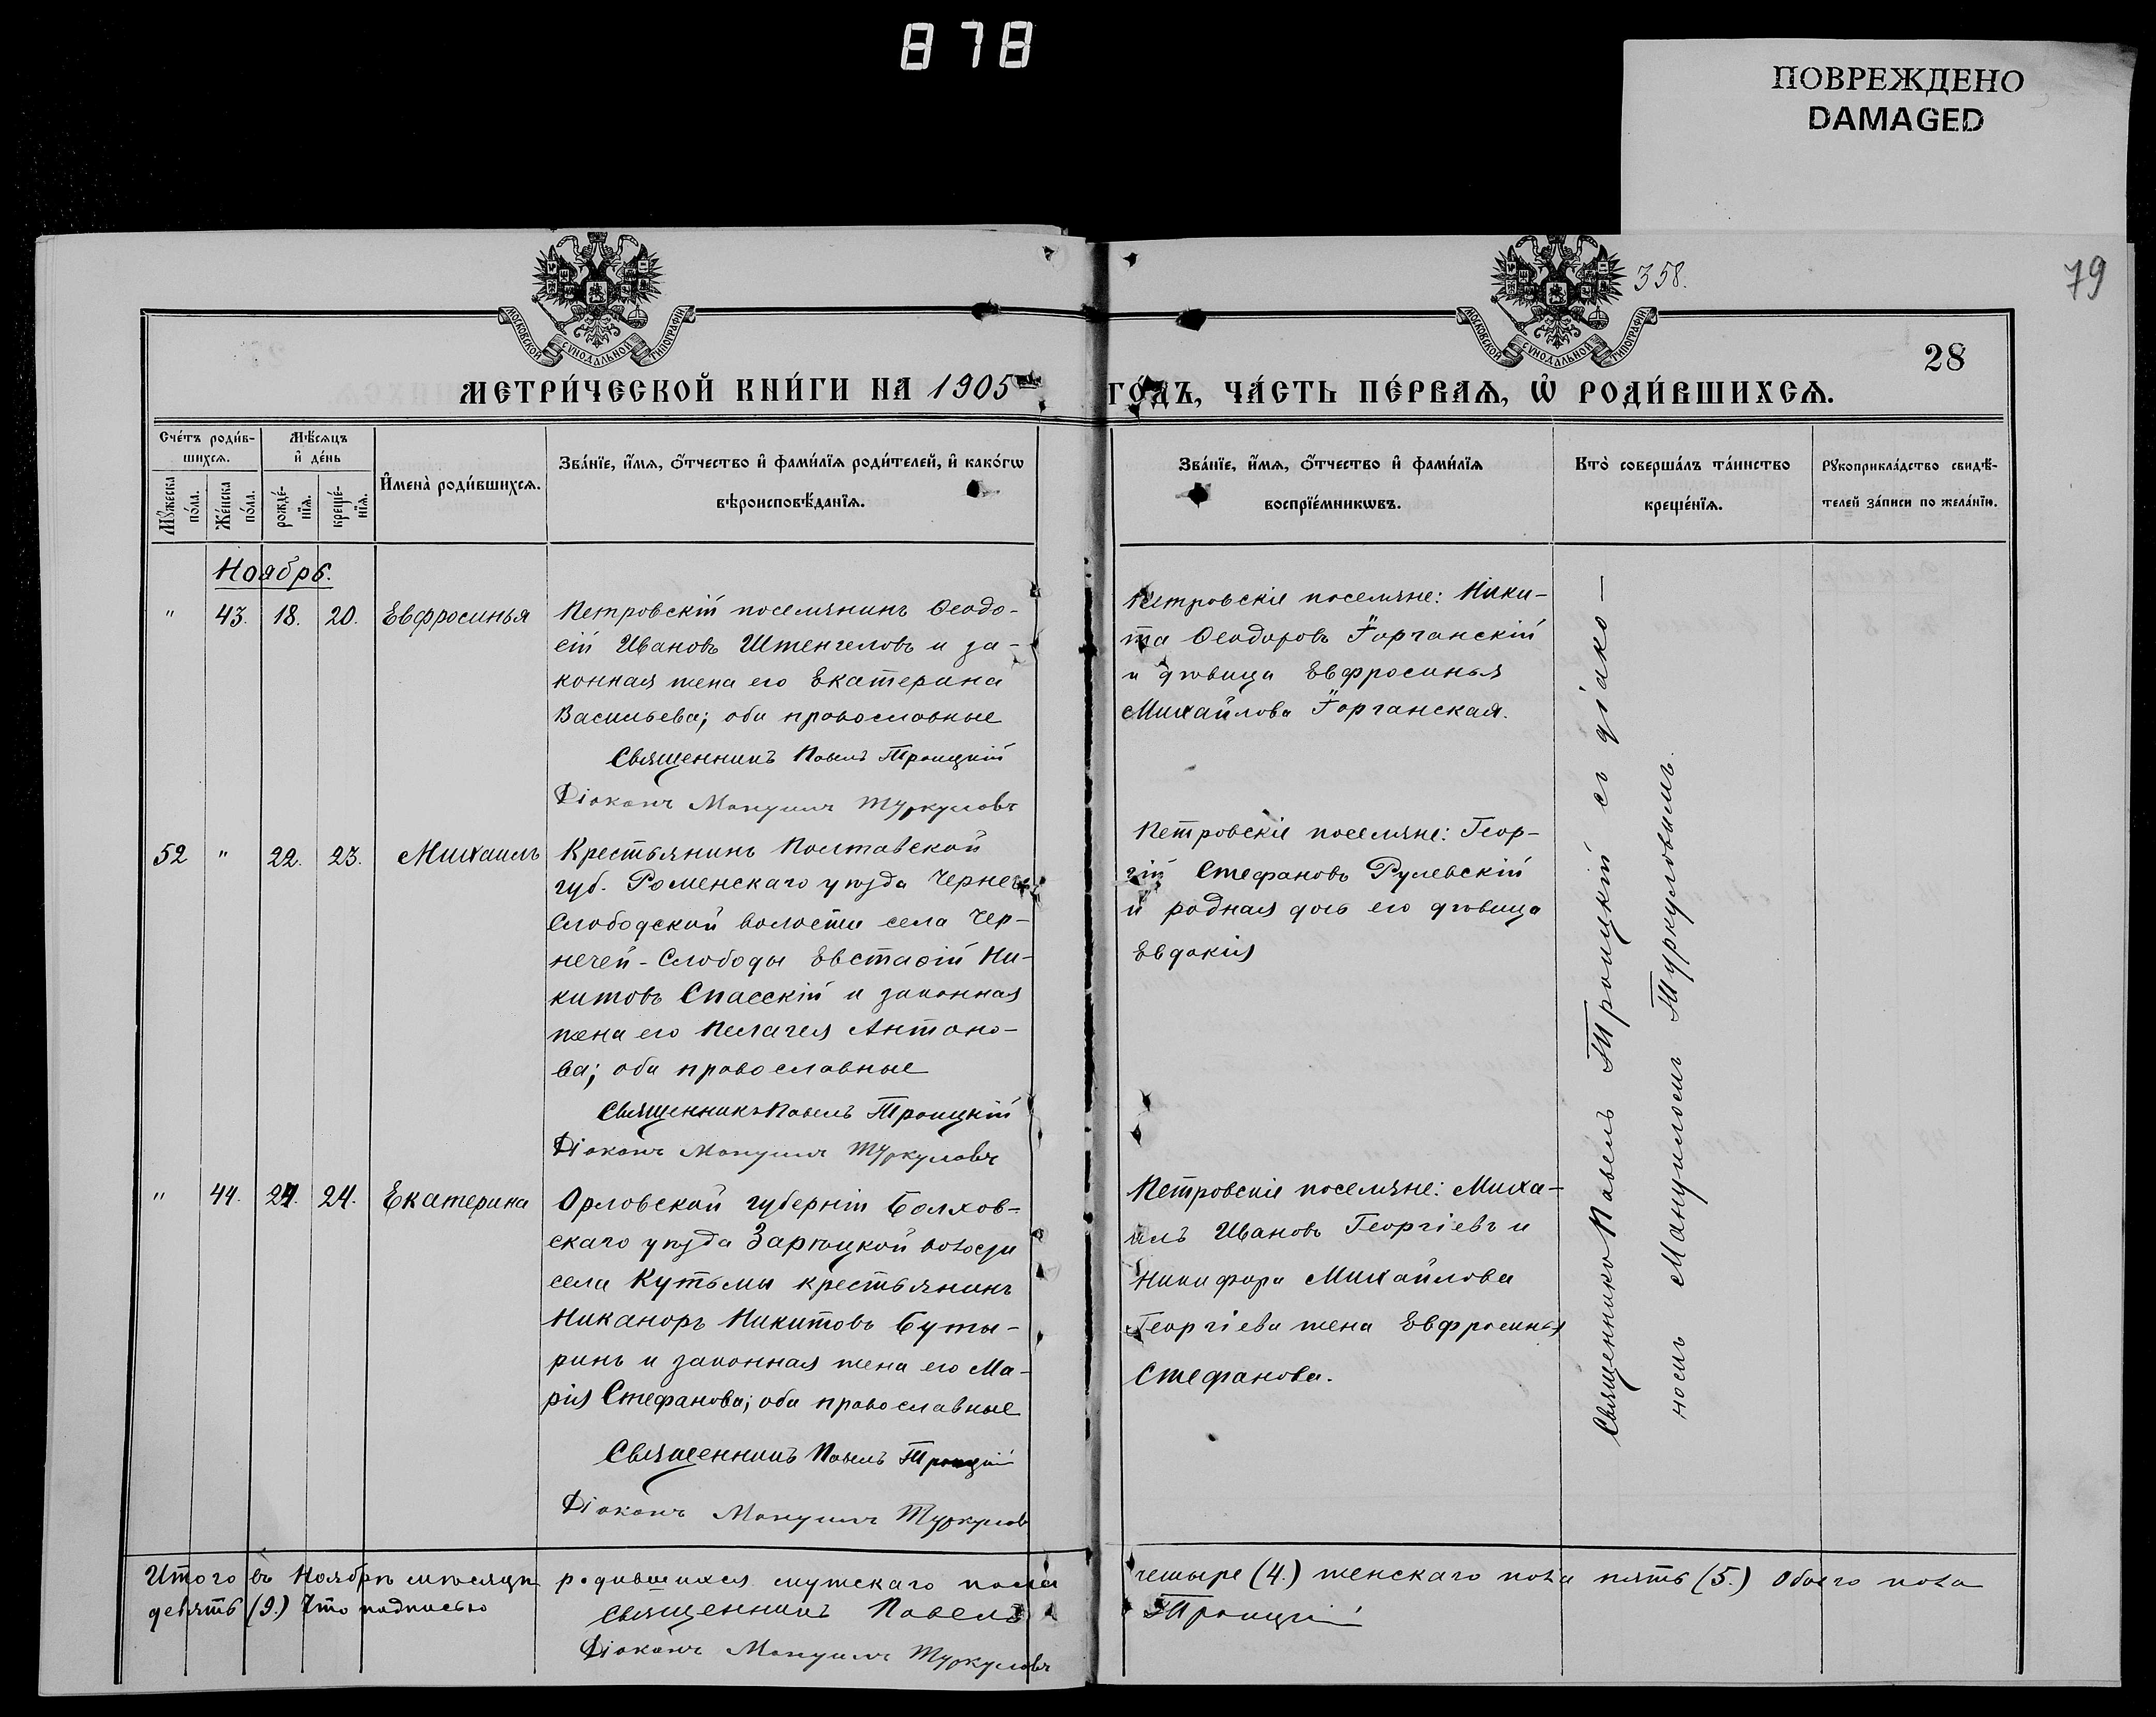 878
ПОВРЕЖДЕНО
DAMAGED
358.
79
МОСКОВСКОЙ СѴНОДАЛЬНОЙ ТИПОГРАФІИ
МОСКОВСКОЙ СѴНОДАЛЬНОЙ ТИПОГРАФІИ
28
МЕТРИ́ЧЕСКОЙ КНИ́ГИ НА 1905
ГО́ДЪ, ЧА́СТЬ ПЕ́РВАѦ, Ѡ҆ РОДИ́ВШИХСѦ.
Сче́тъ роди́в-
шихсѧ.
Мꙋжеска по́ла.
Же́нска по́ла.
Мѣ́сѧцъ
и҆ де́нь
рожде́-
нїѧ.
креще́-
нїѧ.
И҆мена̀ роди́вшихсѧ.
Зва́нїе, и҆́мѧ, ѻ҆́тчество и҆ фами́лїѧ роди́телей, и҆ како́гѡ
вѣроисповѣ́данїѧ.
Зва́нїе, и҆́мѧ, ѻ҆́тчество и҆ фами́лїѧ
воспрїе́мникѡвъ.
Кто̀ соверша́лъ та́инство
креще́нїѧ.
Рꙋкоприкла́дство свидѣ́-
телей за́писи по жела́нїю.
Ноябрь.
" 43. 18. 20. Евфросинья
Петровскій поселянинъ Ѳеодо-
сій Ивановъ Штенгеловъ и за-
конная жена его Екатерина
Васильева; оба православные
Священникъ Павелъ Троицкій
Діаконъ Мануилъ Туркуловъ
Петровскіе поселяне: Ники-
та Ѳеодоровъ Ғорганскій
и дѣвица Евфросинья
Михайлова Ғорганская.
52 " 22. 23. Михаилъ
Крестьянинъ Полтавской
губ. Роменскаго уѣзда Чернече
Слободской волости села Чер-
нечей-Слободы Евстаѳій Ни-
китовъ Спасскій и законная
жена его Пелагея Антоно-
ва; оба православные
Священникъ Павелъ Троицкій
Діаконъ Мануилъ Туркуловъ
Петровскіе поселяне: Геор-
гій Стефановъ Рулевскій
и родная дочь его дѣвица
Евдокія
" 44. 24. 24. Екатерина
Орловской губерніи Болхов-
скаго уѣзда Зарѣцкой волости
села Кутьмы крестьянинъ
Никаноръ Никитовъ Буты-
ринъ и законная жена его Ма-
рія Стефанова; оба православные
Священникъ Павелъ Троицкій
Діаконъ Мануилъ Туркулов
Петровскіе поселяне: Миха-
илъ Ивановъ Георгіевъ и
Никифора Михайлова
Георгіева жена Евфросинья
Стефанова.
Священникъ Павелъ Троицкій съ діако-
номъ Мануиломъ Туркуловымъ.
Итого въ Ноябрѣ мѣсяцѣ родившихся мужескаго пола четыре (4.) женскаго пола пять (5.) Обоего пола
девять (9.) Что подписью Священникъ Павелъ Троицкій
Діаконъ Мануилъ Туркуловъ